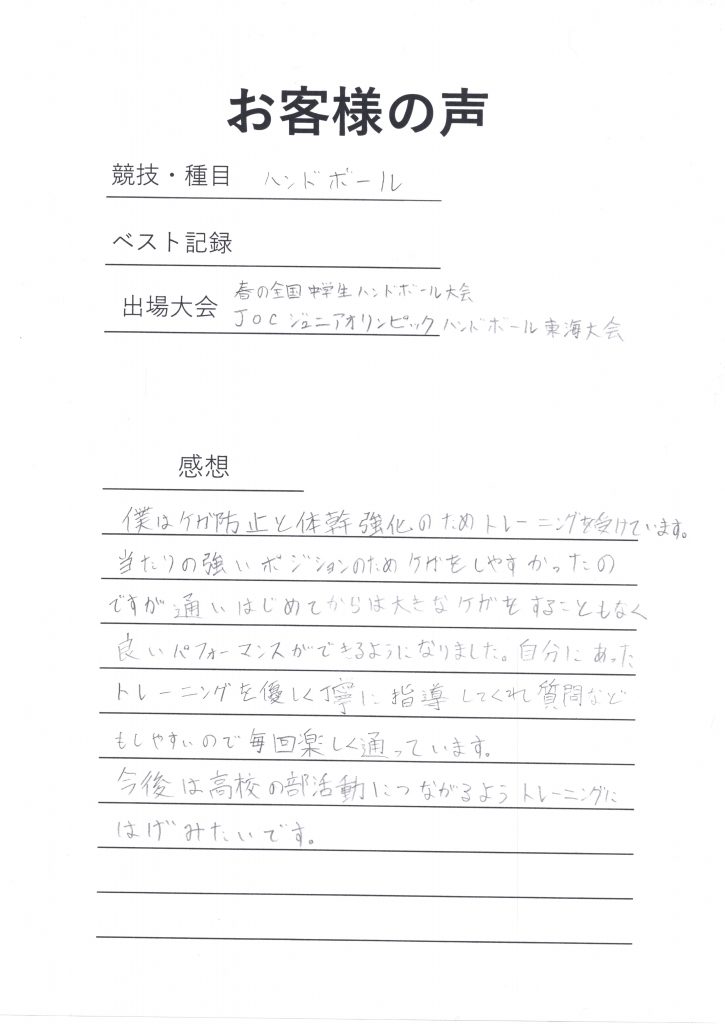 お客様の声
競技・種目 ハンドボール
ベスト記録
出場大会 春の全国中学生ハンドボール大会
JOCジュニアオリンピックハンドボール東海大会
感想
僕はケガ防止と体幹強化のためトレーニングを受けています。
当たりの強いポジションのためケガをしやすかったの
ですが通いはじめてからは大きなケガをすることもなく
良いパフォーマンスができるようになりました。自分にあった
トレーニングを優しく丁寧に指導してくれ質問など
もしやすいので毎回楽しく通っています。
今後は高校の部活動につながるようトレーニングに
はげみたいです。